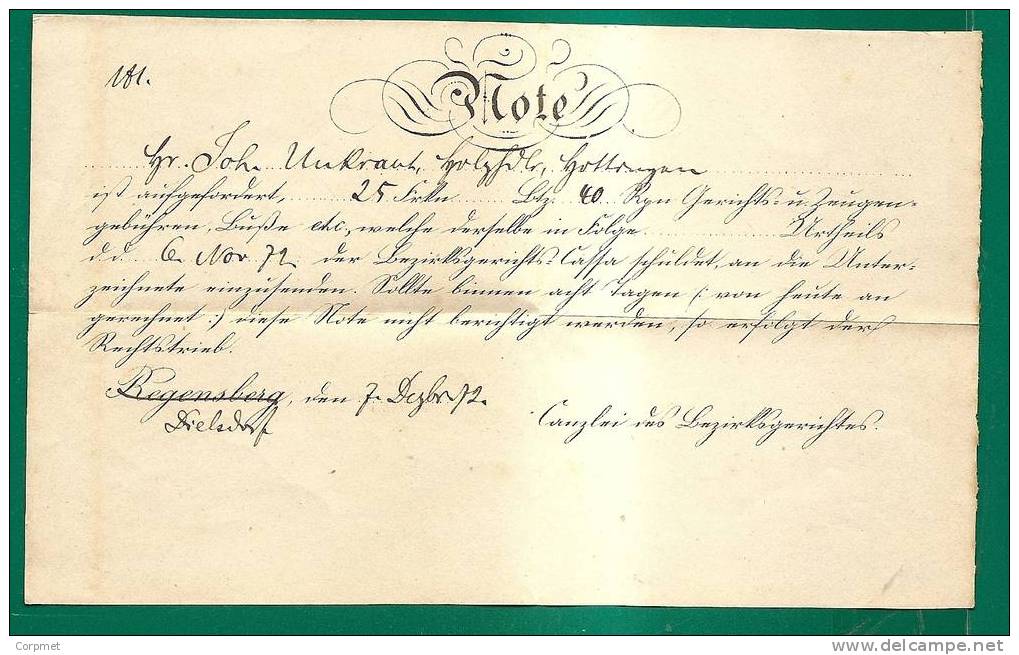 181.
Note
Hr. Joh. Unkraut, Holzhdlr, Hottingen
ist aufgefordert, 25 Frkn Btz. 40 Rpn Gerichts- u. Zeugen-
gebühren, Buße etc, welche derselbe in Folge Urtheils
d.d. 6 Nov 72 der Bezirksgerichts-Cassa schuldet, an die Unter-
zeichnete einzusenden. Sollte binnen acht Tagen (: von heute an
gerechnet :) diese Note nicht berichtigt werden, so erfolgt der
Rechtstrieb.
Regensberg, den 7. Dezbr 72.
Dielsdorf
Canzlei des Bezirksgerichtes.
Corpmet
delcampe.net